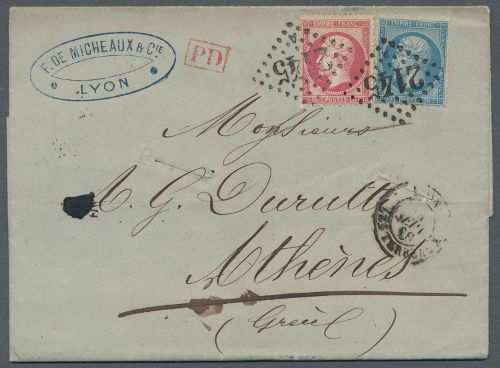 F. DE MICHEAUX & CIE
LYON
PD
EMPIRE FRANC
EMPIRE FRANC
POSTES
2145
2145
Monsieur
M. G. Durutti
Athènes
(Grèce)